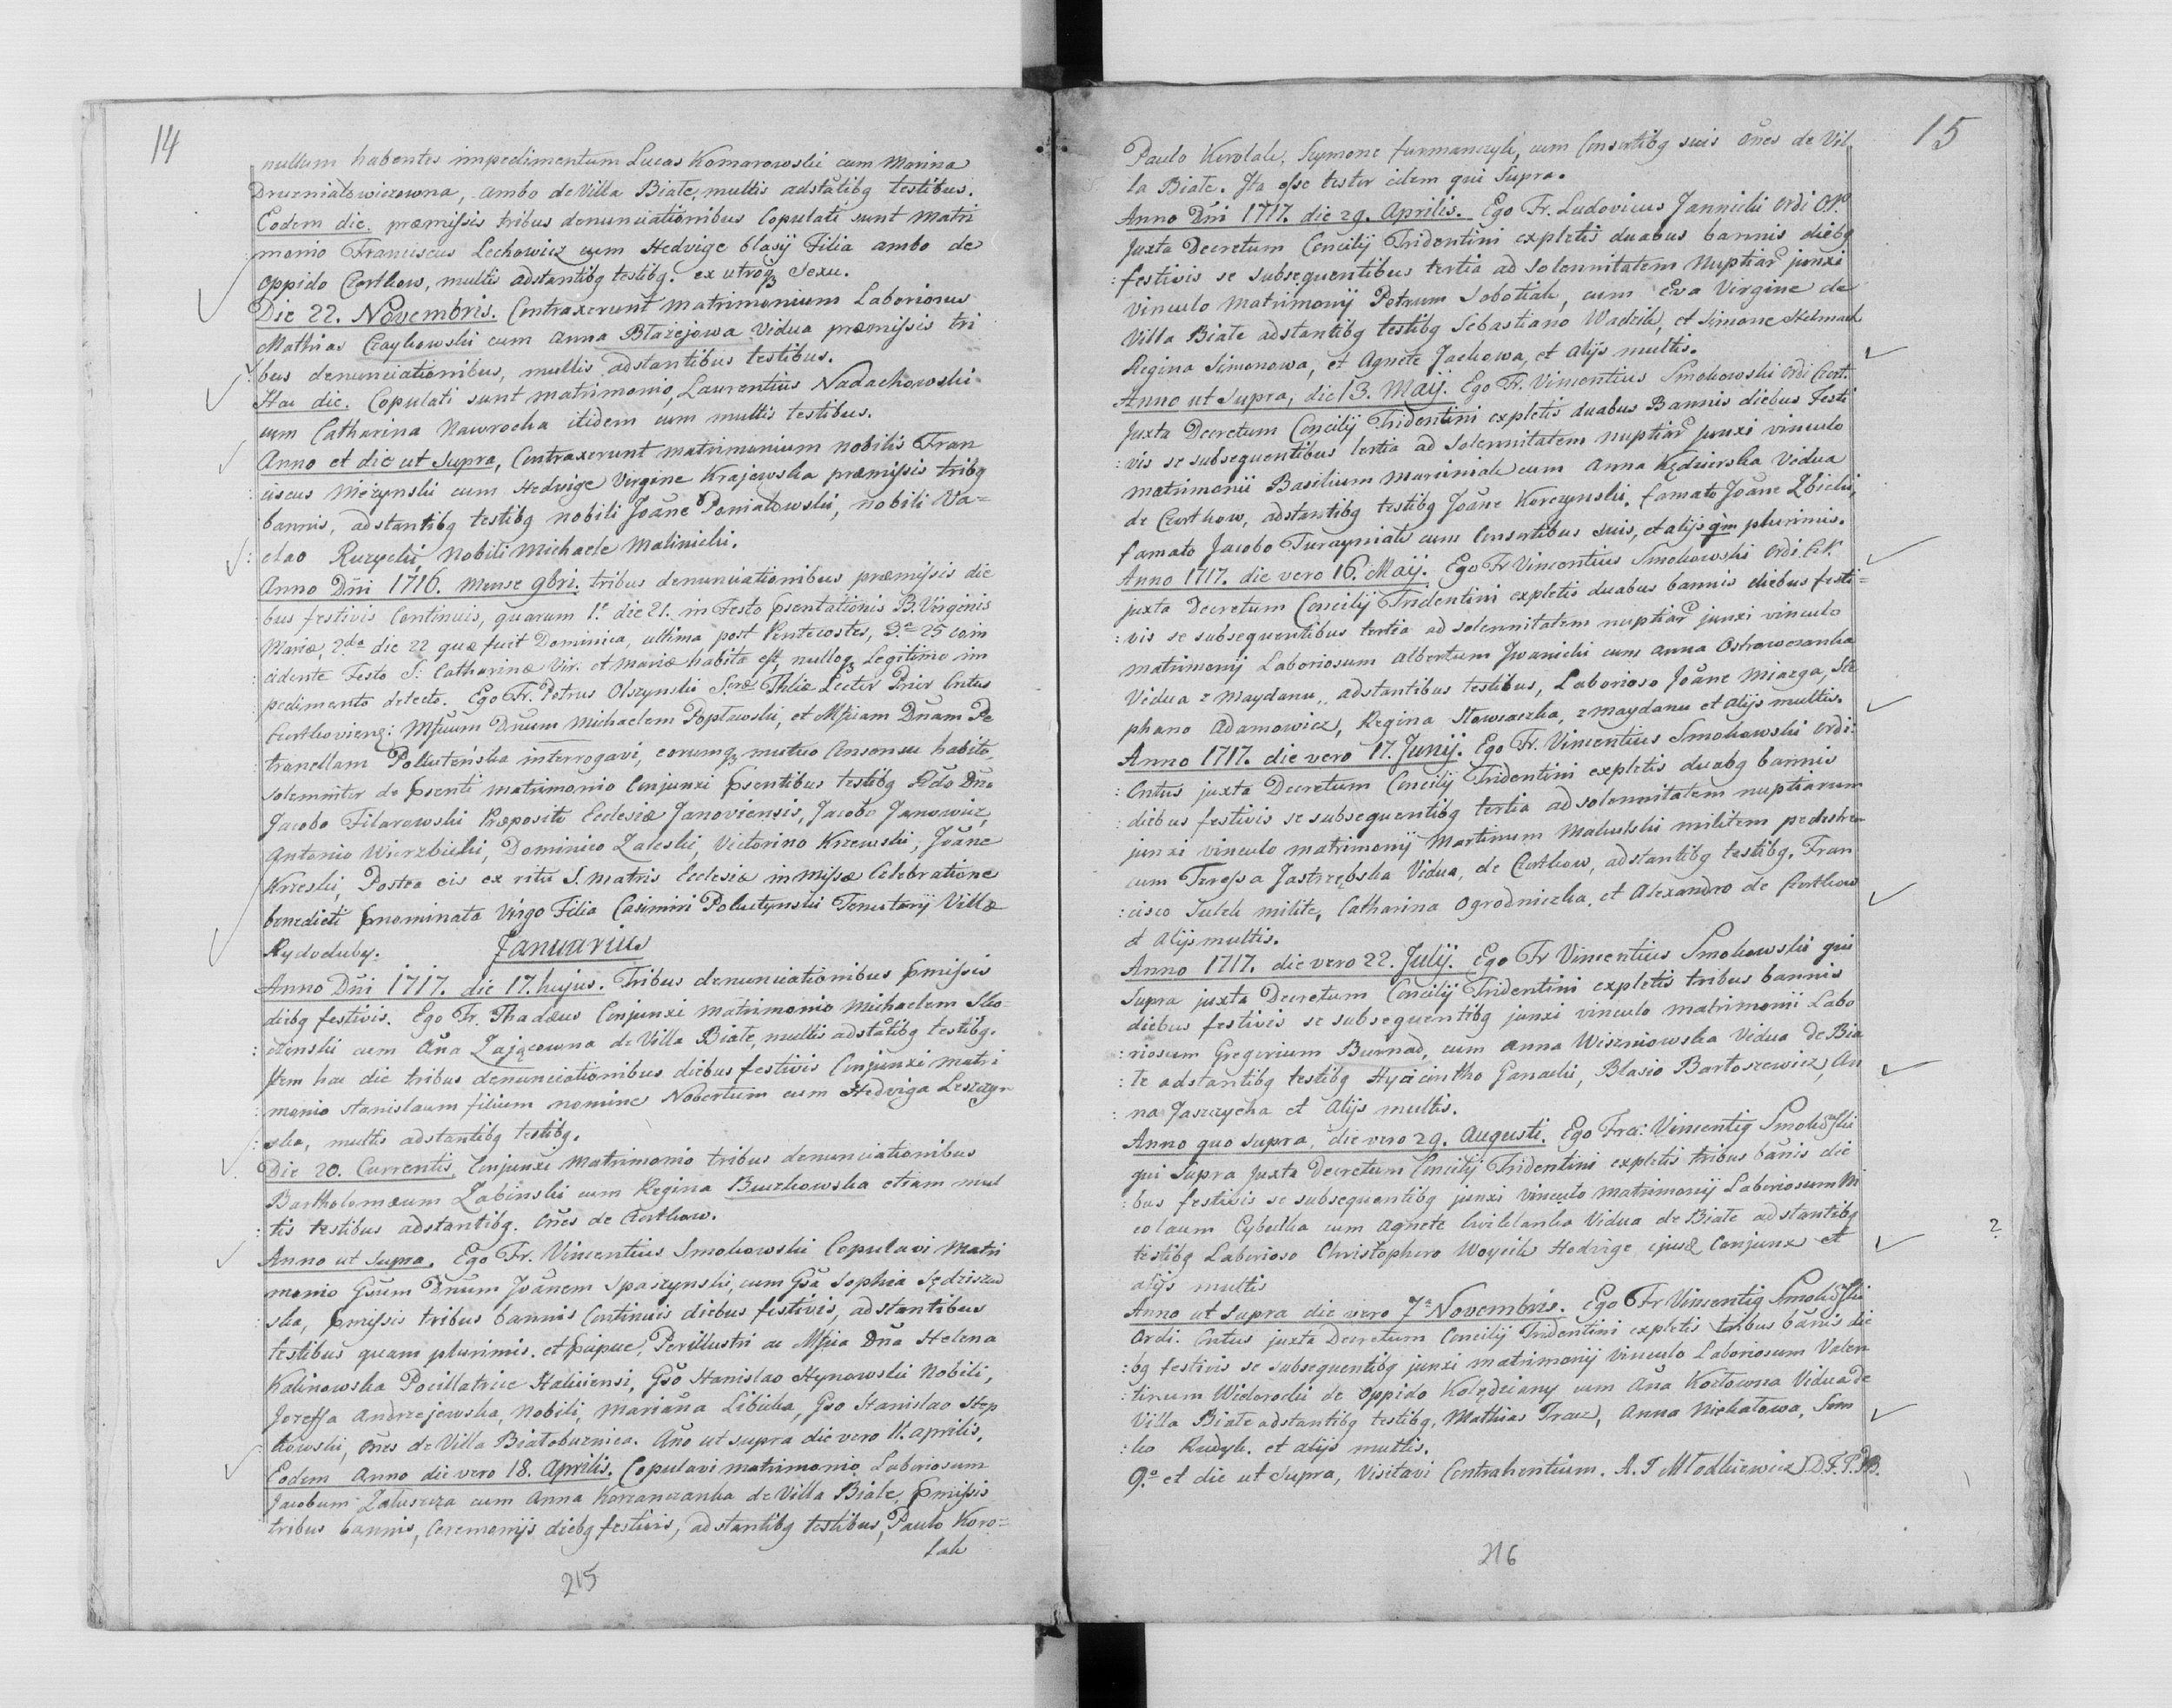 14
nullum habentes impedimentum Lucas Komarowski cum Marina
Druzniałowiczowna, ambo de Villa Białe, multis adstãtibg testibus.
Eodem die. præmissis tribus denunciationibus Copulati sunt matri
monio Franciscus Lechowicz cum Hedvige blasij Filia ambo de
oppido Czortkow, multis adstantibg testibg. ex utroq3 sexu.
Die 22. Novembris. Contraxerunt matrimonium Laboriosus
Mathias Czaykowski cum Anna Błażejowa Vidua præmissis tri
:bus denunciationibus, multis adstantibus testibus.
Hac die. Copulati sunt matrimonio, Laurentius Nadachowski
cum Catharina Nawrocka itidem cum multis testibus.
Anno et die ut supra, Contraxerunt matrimonium nobilis Fran
ciscus Mężynski cum Hedvige Virgine Krajewska præmissis tribg
bannis, adstantibg testibg nobili Joãne Poniatowski, nobili Va=
:clao Ruzycki, nobili Michaele Malinicki.
Anno Dñi 1716. Mense 9bri. tribus denunciationibus præmissis die
bus festivis Continuis, quarum 1.a die 21. in Festo psentationis B. Virginis
Mariæ, 2da die 22 quæ fuit Dominica, ultima post Pentecostes, 3.a 25 coin
:cidente Festo S. Catharinæ Vir. et Mariæ habita est, nulloq3 Legitimo im
pedimento detecto. Ego Fr. Petrus Olszynski S.cræ Thliæ Lector Prior Cntus
Czortkovieng: Mficum Dnum Michaelem Popławski, et Mficam Dnam Pe
:tronellam Polluteńska interrogavi, eorumq3 mutuo Consensu habito
solemniter de psenti matrimonio Conjunxi psentibus testibg Rdo Dño
Jacobo Filarowski Præposito Ecclesiæ Janoviensis, Jacobo Janowicz,
Antonio Wierzbicki, Dominico Zaleski, Victorino Krzewski, Joãne
Krzeski, Postea eis ex ritu S. Matris Ecclesiæ in Missæ Celebratione
benedicti pnominata Virgo Filia Casimiri Polutynski Tenutarij Villæ
Rydoduby.
Januarius
Anno Dñi 1717. die 17. hujus. Tribus denunciationibus pmissis
diebg festivis. Ego Fr. Thadæus Conjunxi matrimonio Michaelem Sko=
:czenski cum Aña Zającowna de Villa Białe, multis adstãtibg testibg.
Item hac die tribus denunciationibus diebus festivis Conjunxi matri
:monio Stanislaum filium nomine Nobertum cum Hedviga Leszczyn
:ska, multis adstantibg testibg.
Die 20. Currentis, Conjunxi matrimonio tribus denunciationibus
Bartholomæum Zabinski cum Regina Buczkowska etiam mul
:tis testibus adstantibg. Oñes de Czortkow.
Anno ut supra. Ego Fr. Vincentius Smokowski Copulavi matri
monio Gsum Dnum Joãnem Spaszynski, cum Gsa Sophia Sędziszow
:ska, pmissis tribus bannis Continuis diebus festivis, adstantibus
testibus quam plurimis. et pcipue, Perillustri ac Mfica Dña Helena
Kalinowska Pocillatrice Haliciensi, Gso Stanislao Hynowski Nobili,
Joressa Andrzejewska, Nobili, Mariaña Libicka, Gso Stanislao Step
kowski, oñes de Villa Białobuznica. Año ut supra die vero 11. aprilis,
Eodem Anno die vero 18. Aprilis. Copulavi matrimonio Laboriosum
Jacobum Załuszcza cum Anna Korzanczanka de Villa Białe, pmissis
tribus bannis, Ceremonijs diebg festivis, adstantibg testibus, Paulo Koro=
lak
215
15
Paulo Korolak, Szymone furmanczyk, cum Consortibg suis oñes de Vil
la Białe. Ita esse testor idem qui supra.
Anno Dñi 1717. die 29. Aprilis. Ego Fr. Ludovicus Jannicki Ordi OP.
Juxta Decretum Concilij Tridentini expletis duabus bannis diebg
:festivis se subsequentibus tertia ad solennitatem nuptiar junxi
vinculo matrimonij Petrum Sobotiak, cum Eva Virgine de
Villa Białe adstantibg testibg Sebastiano Wadzik, et Simone Helmach
Regina Simonowa, et Agnete Jackowa, et alijs multis.
Anno ut supra, die 13. Maij. Ego Fr. Vincentius Smokowski Ordi Czort.
Juxta Decretum Concilij Tridentini expletis duabus Bannis diebus Festi
:vis se subsequentibus tertia ad solennitatem nuptiar junxi vinculo
matrimonii Basilium Marciniak cum Anna Kędzierska Vidua
de Czortkow, adstantibg testibg Joãne Korczynski, famato Joãne Zbicki,
famato Jacobo Turczyniak cum Consortibus suis, et alijs qm plurimis.
Anno 1717. die vero 16. Maij. Ego Fr Vincentius Smokowski Ordi. Cz.
juxta Decretum Concilij Tridentini expletis duabus bannis diebus festi=
:vis se subsequentibus tertia ad solennitatem nuptiar junxi vinculo
matrimonij Laboriosum Albertum Iwanicki cum Anna Ostrowczanka
Vidua z Maydanu, adstantibus testibus, Laborioso Joãne Miazga, Ste
phano Adamowicz, Regina Słowaczka, z maydanu et alijs multis.
Anno 1717. die vero 17. Junij. Ego Fr. Vincentius Smokowski Ordi:
:Cntus juxta Decretum Concilij Tridentini expletis duabg bannis
:diebus festivis se subsequentibg tertia ad solennitatem nuptiarum
junxi vinculo matrimonij Martinum Maluchski militem pedestrem
cum Teressa Jastrzębska Vidua, de Czortkow, adstantibg testibg, Fran
:cisco Sulek milite, Catharina Ogrodniczka, et Alexandro de Czortkow
et alijs multis.
Anno 1717. die vero 22. Julij. Ego Fr Vincentius Smokowski qui
supra juxta Decretum Concilij Tridentini expletis tribus bannis
diebus festivis se subsequentibg junxi vinculo matrimonii Labo
:riosum Gregorium Burnad, cum Anna Wiszniowska Vidua de Bia
:łe adstantibg testibg Hyacintho Ganacki, Blasio Bartoszewicz, An
:na Jaszczycha et alijs multis.
Anno quo supra, die vero 29. Augusti. Ego Fra: Vincentig Smokoski
qui supra juxta Decretum Concilij Tridentini expletis tribus bãnis die
:bus festivis se subsequentibg junxi vinculo matrimonij Laboriosum Ni
colaum Cybulka cum Agnete Cwiklanka Vidua de Białe adstantibg
testibg Laborioso Christophoro Woycik Hedvige, ejusd Conjunx et
alijs multis
?
Anno ut supra die vero 7a Novembris. Ego Fr Vincentig Smokoski
Ordi. Cntus juxta Decretum Concilij Tridentini expletis tribus bãnis die
:bg festivis se subsequentibg junxi matrimonij vinculo Laboriosum Valen
:tinum Widorocki de oppido Kolędziany cum Aña Kozłowna Vidua de
Villa Białe adstantibg testibg, Mathias Tracz, Anna Michałowa, Sem
:ko Rudyk. et alijs multis.
9.a et die ut supra, Visitavi Contrahentium. A. J Młodkiewicz D.F.P.PB.
216